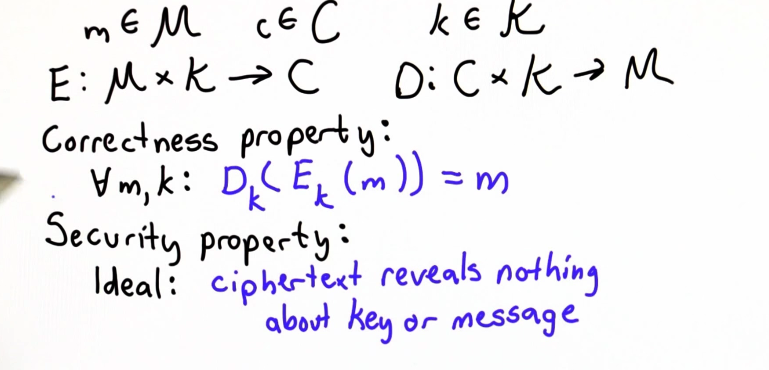 m ∈ M c ∈ C k ∈ K
E: M × K → C D: C × K → M
Correctness property:
∀ m, k: D_k(E_k(m)) = m
Security property:
Ideal: ciphertext reveals nothing
about key or message